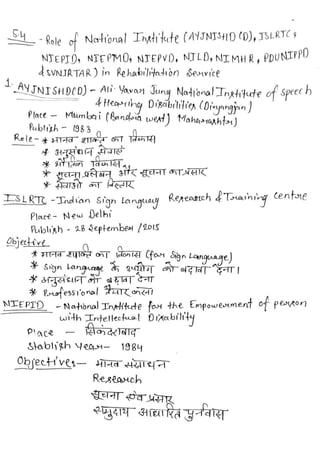 5.4 - Role of National Institute (AYJNISHD(D), ISLRTC,
NIEPID, NIEPMD, NIEPVD, NILD, NIMHR, PDUNIPPD
& SVNIRTAR) in Rehabilitation Service
1. AYJNISHD(D) - Ali Yavar Jung National Institute of speech
& Hearing Disabilities (Divyangjan)
Place - Mumbai (Bandra west) Maharashtra)
Publish - 1983
Role - * मानव शक्ति का विकास
* अनुसंधान सेवाएँ
* शैक्षिक विकास
* सूचना प्रलेखन और सूचना का प्रसार
* सेवाओं का विस्तार
ISLRTC - Indian Sign Language Research & Training Centre
Place - New Delhi
Publish - 28 September / 2015
Objective
* मानव शक्ति का विकास (for Sign Language)
* Sign Language के प्रयोग को बढ़ावा देना।
* अनुसंधान को बढ़ावा देना
* Professional तैयार करना
NIEPID - National Institute for the Empowerment of person
with Intellectual Disability
Place - सिकंदराबाद
Stablish Year - 1984
Objective - मानव संसाधन
Research
सूचना एवं प्रसार
समुदाय आधारित पुर्नवास